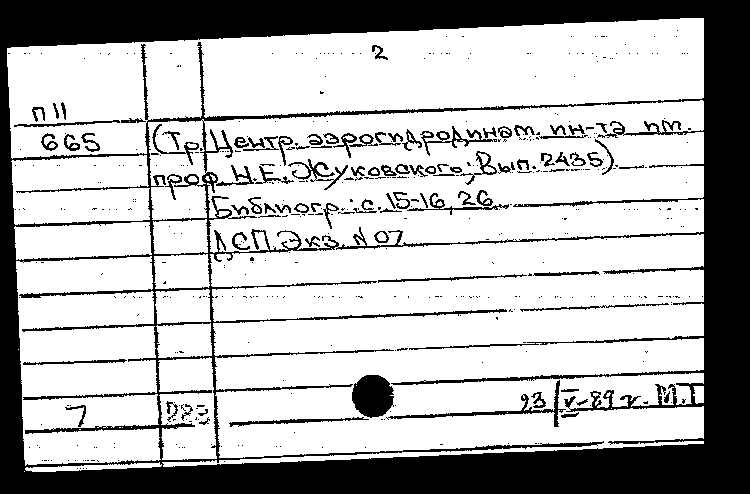 2
П11
665 (Тр. Центр. аэрогидродинам. ин-та им.
проф. Н.Е. Жуковского; Вып. 2435)
Библиогр.: с. 15-16, 26
ДСП. Экз. N 07
7 D83 23/V-89 г. М.Т